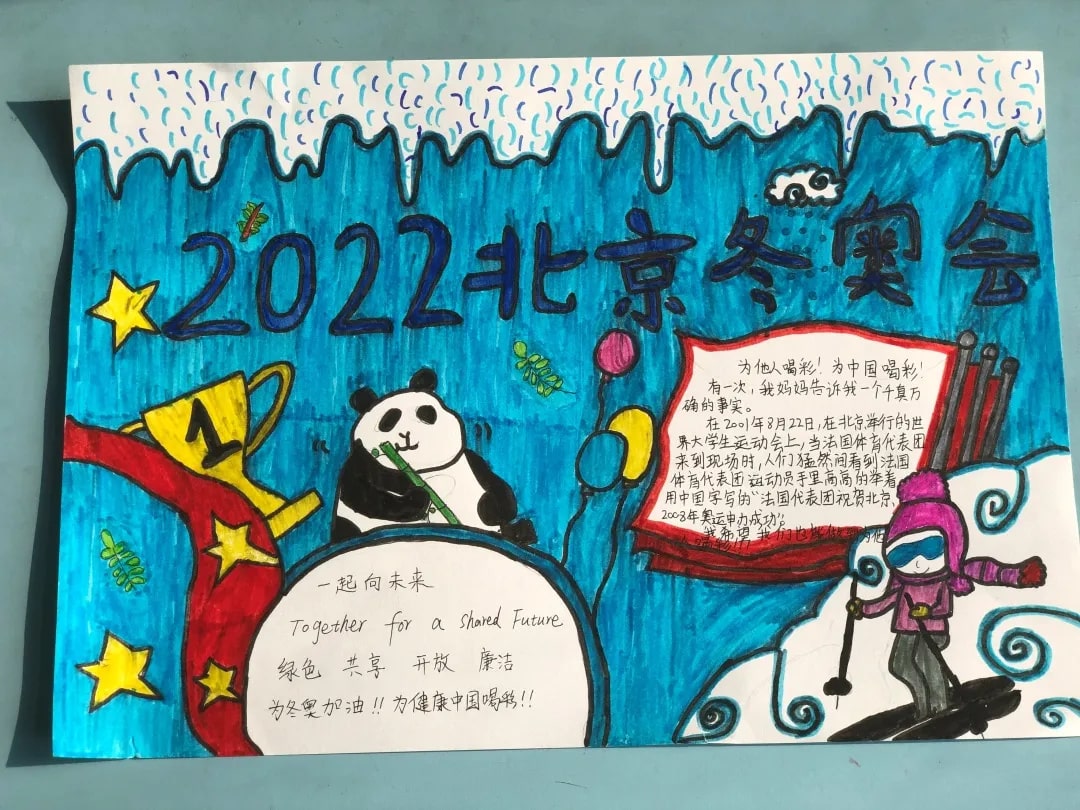 2022北京冬奥会
1
为他人喝彩!为中国喝彩!
有一次,我妈妈告诉我一个千真万
确的事实。
在2001年8月22日,在北京举行的世
界大学生运动会上,当法国体育代表团
来到现场时,人们猛然间看到法国
体育代表团运动员手里高高的举着
用中国字写的“法国代表团祝贺北京
2008年奥运申办成功”。
我希望我们也能
一起向未来
Together for a shared Future
绿色 共享 开放 廉洁
为冬奥加油!!为健康中国喝彩!!